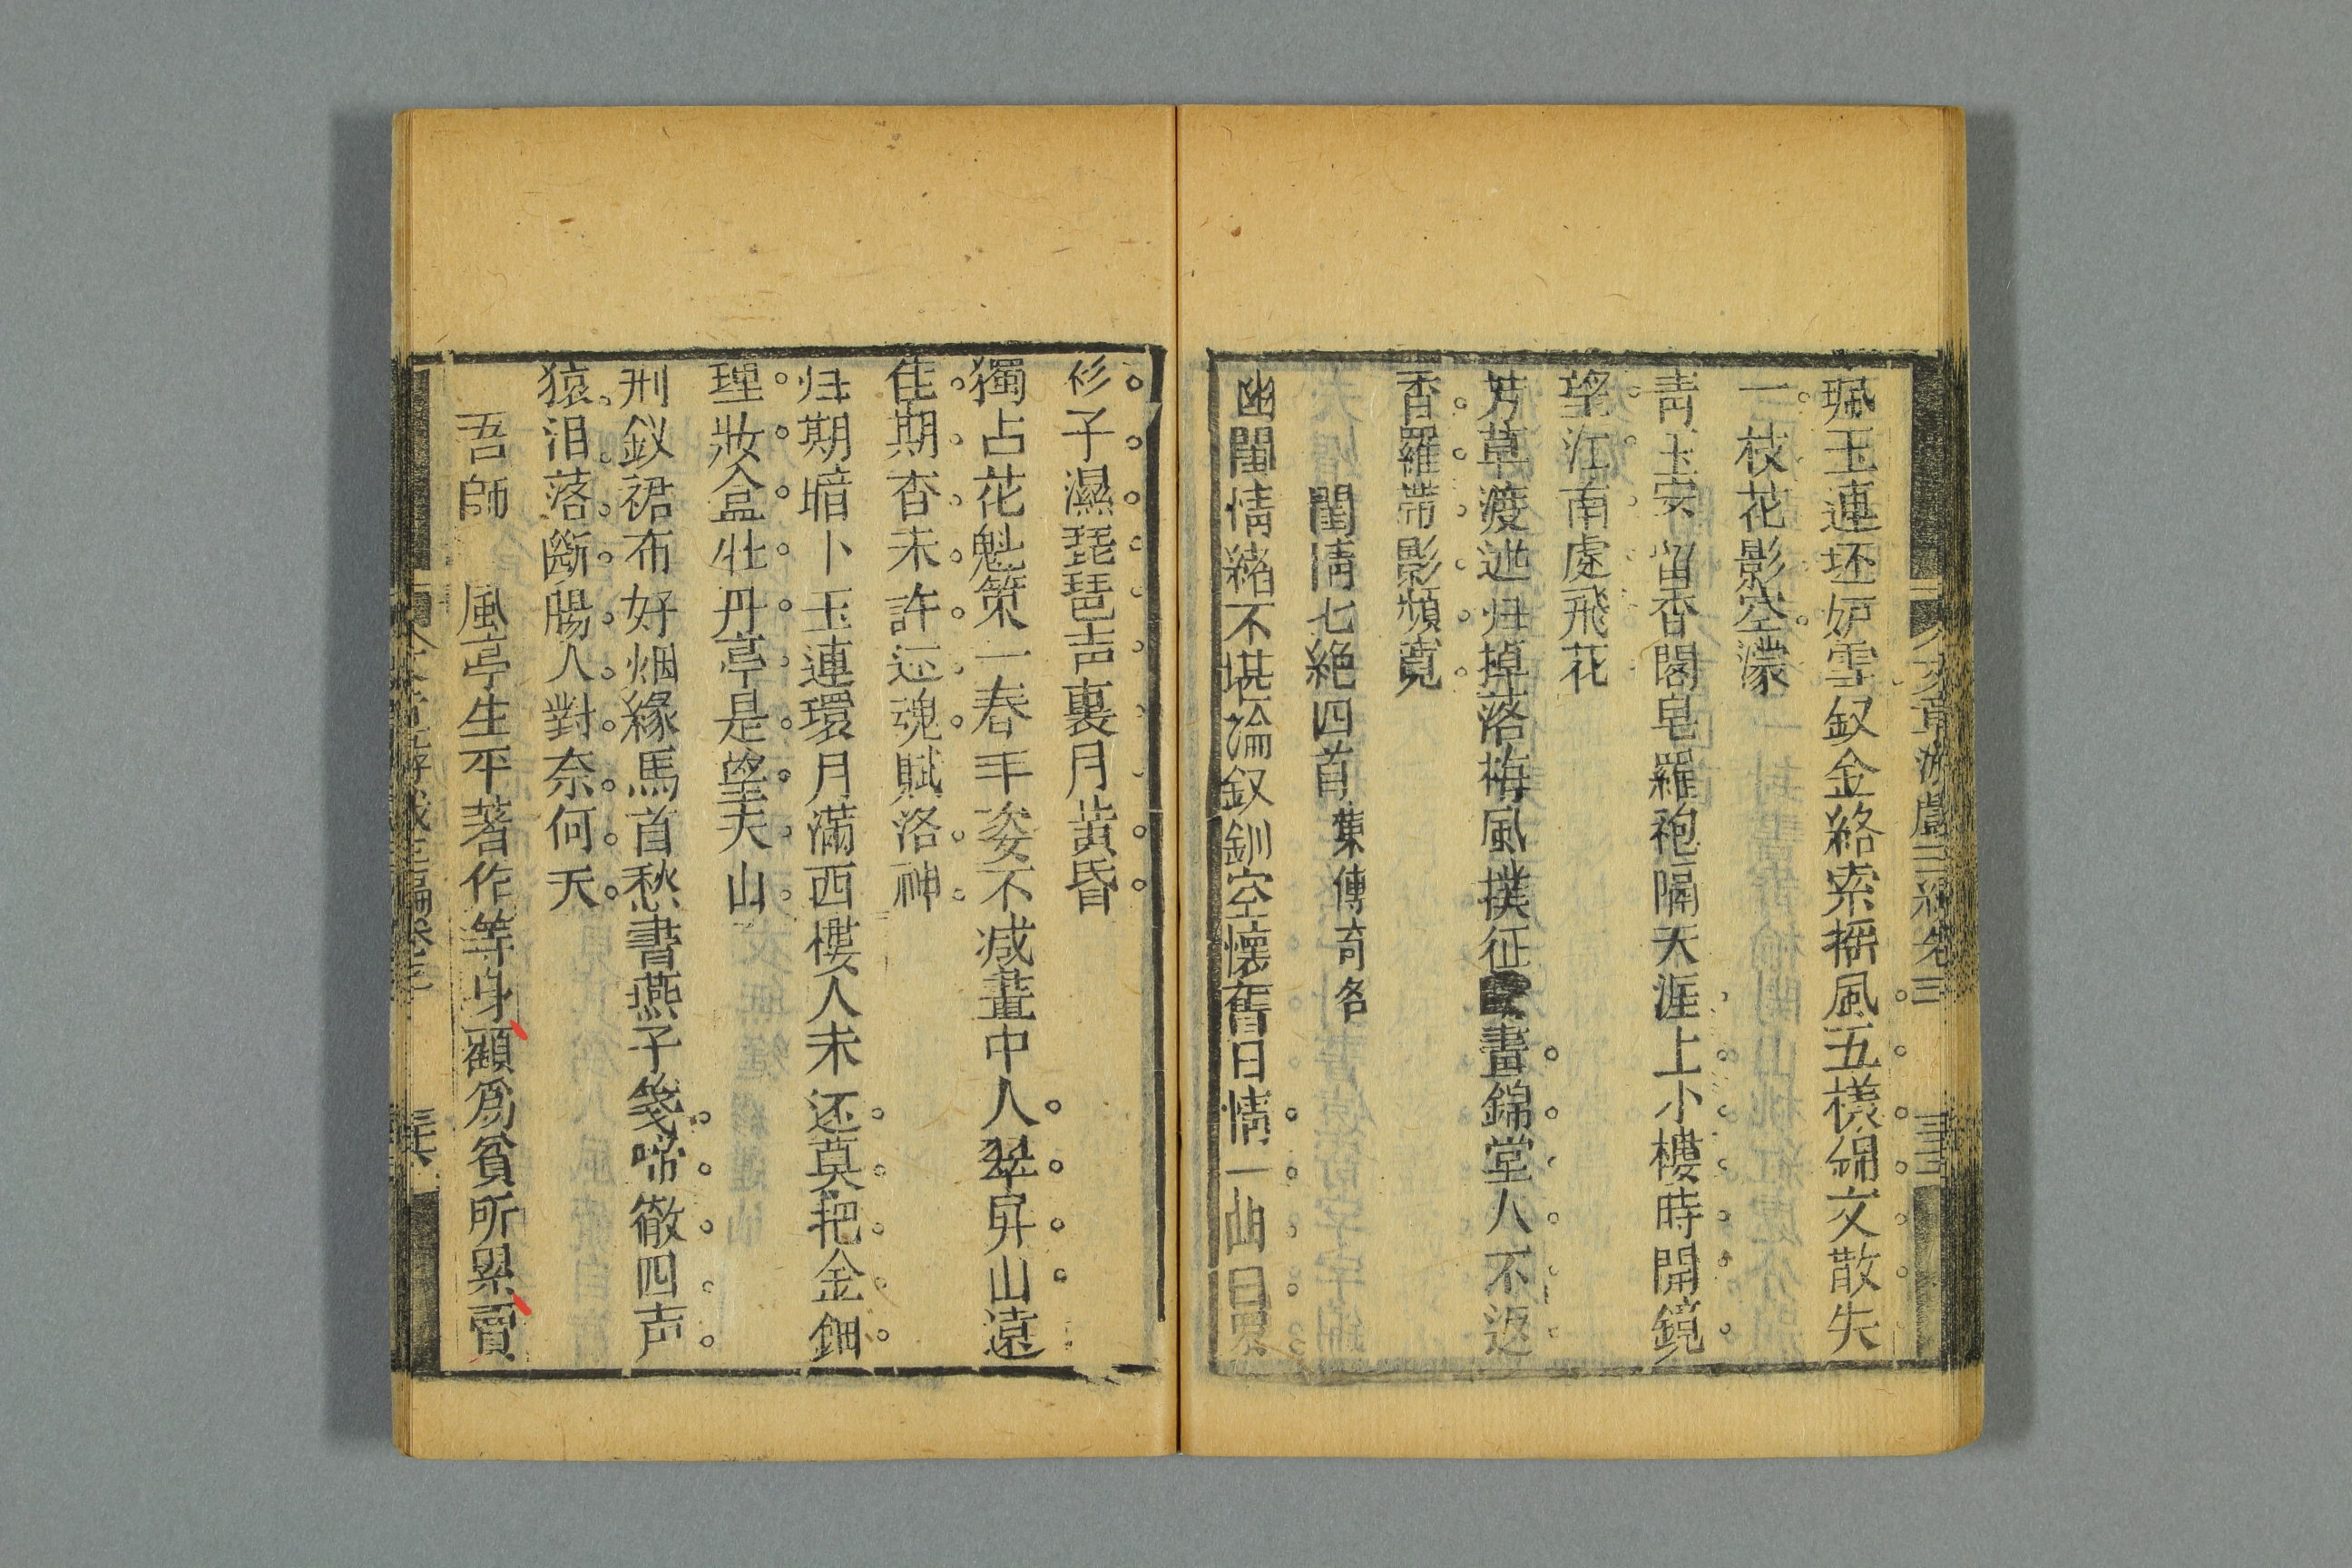 文章游戲三編卷三
珮玉連环妒雪釵金絡索搖風五樣綿文散失
一枝花影空濛
青玉案留香閣皂羅袍隔天涯上小樓時開鏡
望江南處飛花
芳草渡迯归掉落梅風撲征畫錦堂人不返
香羅帶影頻寬
閨情七絕四首集傳奇名
幽閨情緒不堪論釵釧空懷舊日情一曲
衫子濕琵琶声裏月黄昏
獨占花魁第一春丰姿不减畫中人翠屏山遠
佳期杳未許还魂賦洛神
归期暗卜玉連環月滿西樓人未还莫把金鈿
理妝盒牡丹亭是望夫山
荆釵裙布好烟緣馬首愁書燕子箋啼徹四声
猿泪落斷腸人對奈何天
吾師 風亭生平著作等身顧爲貧所累賣